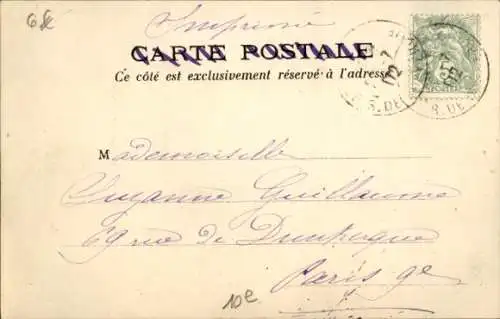 6 Sc
Imprimé
CARTE POSTALE
Ce côté est exclusivement réservé à l'adresse
Mademoiselle
Suzanne Guillaume
69 rue de Dunkerque
Paris 9e
10e